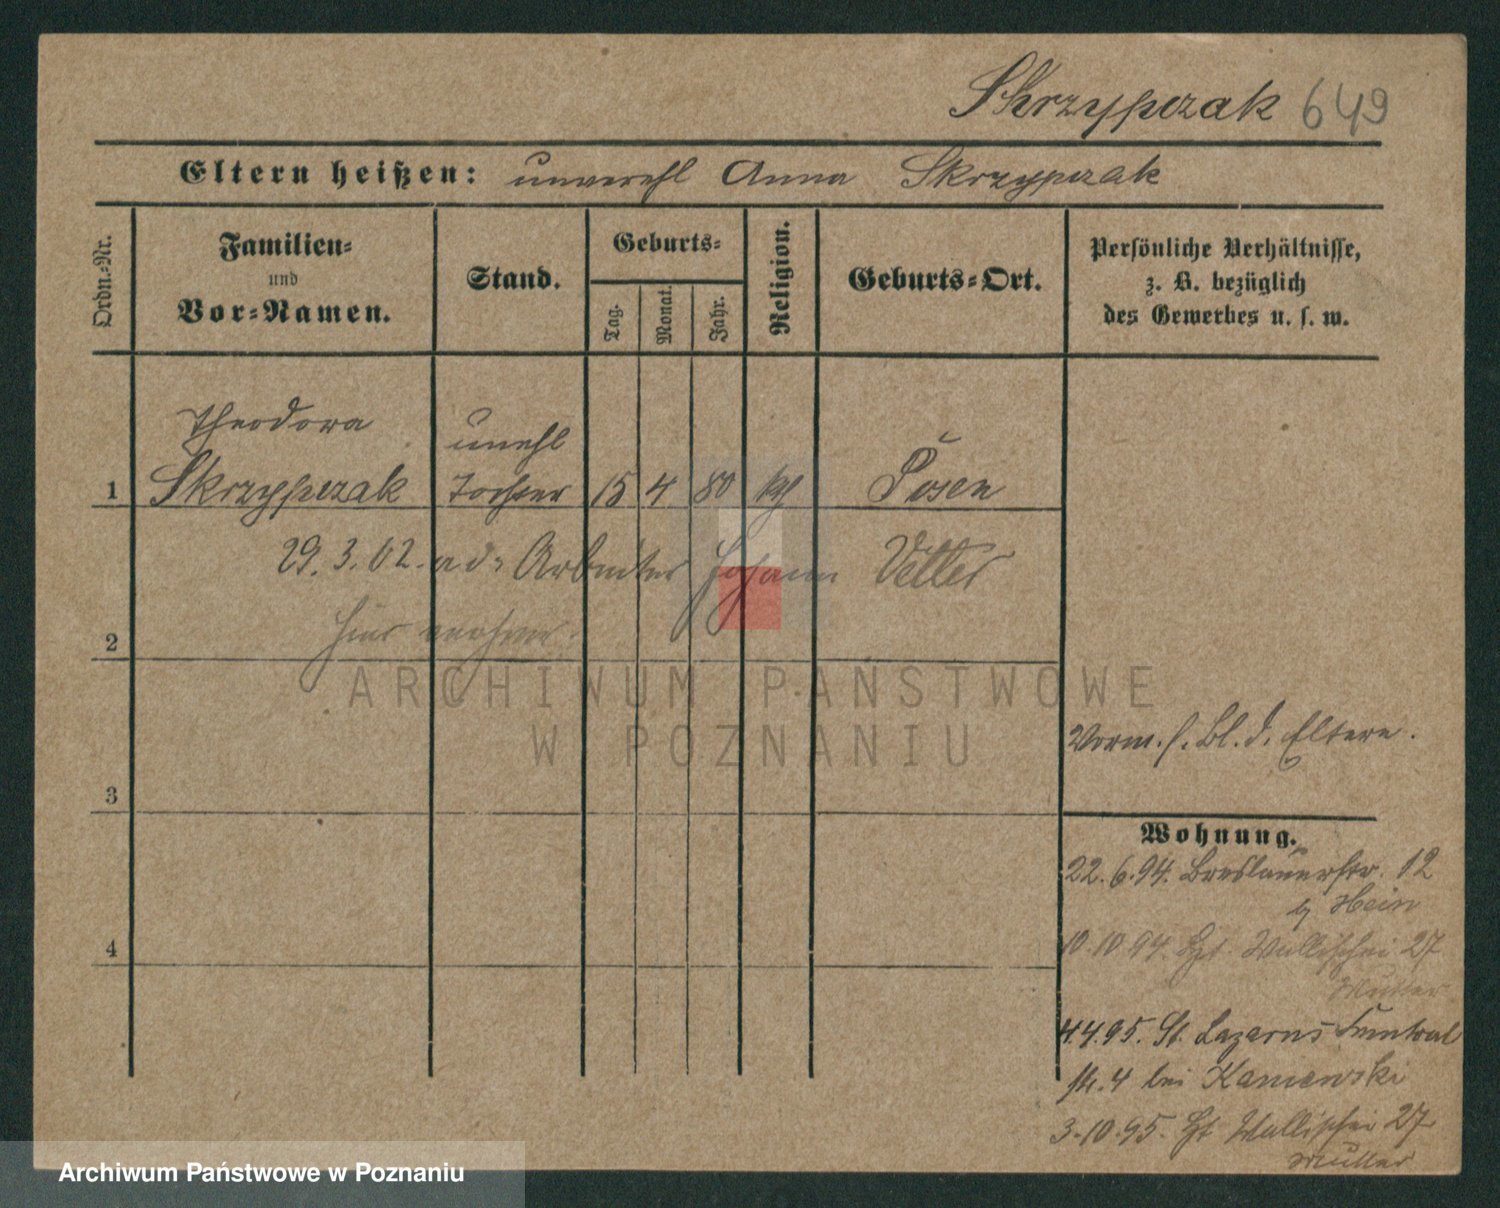 Skrzypczak 649
Eltern heißen: unverehl Anna Skrzypczak
Ordn.-Nr.
Familien- und Vor-Namen.
Stand.
Geburts-
Tag.
Monat.
Jahr.
Religion.
Geburts-Ort.
Persönliche Verhältnisse,
z. B. bezüglich
des Gewerbes u. s. w.
Theodora unehl
1 Skrzypczak Tochter 15 4 80 kth Posen
29.3.02. a d. Arbeiter Johann Vetter
hier
2
ARCHIWUM PAŃSTWOWE
W POZNANIU
Vorm. s. Bl. d. Eltern.
3
Wohnung.
22.6.94. Breslauerstr. 12
b/ Hein
4
10.10.94. Zgt. Wallischei 27
Mutter
4.4.95. St. Lazarus
bei Kaniewski
3.10.95. Zgt Wallischei 27
Mutter
Archiwum Państwowe w Poznaniu